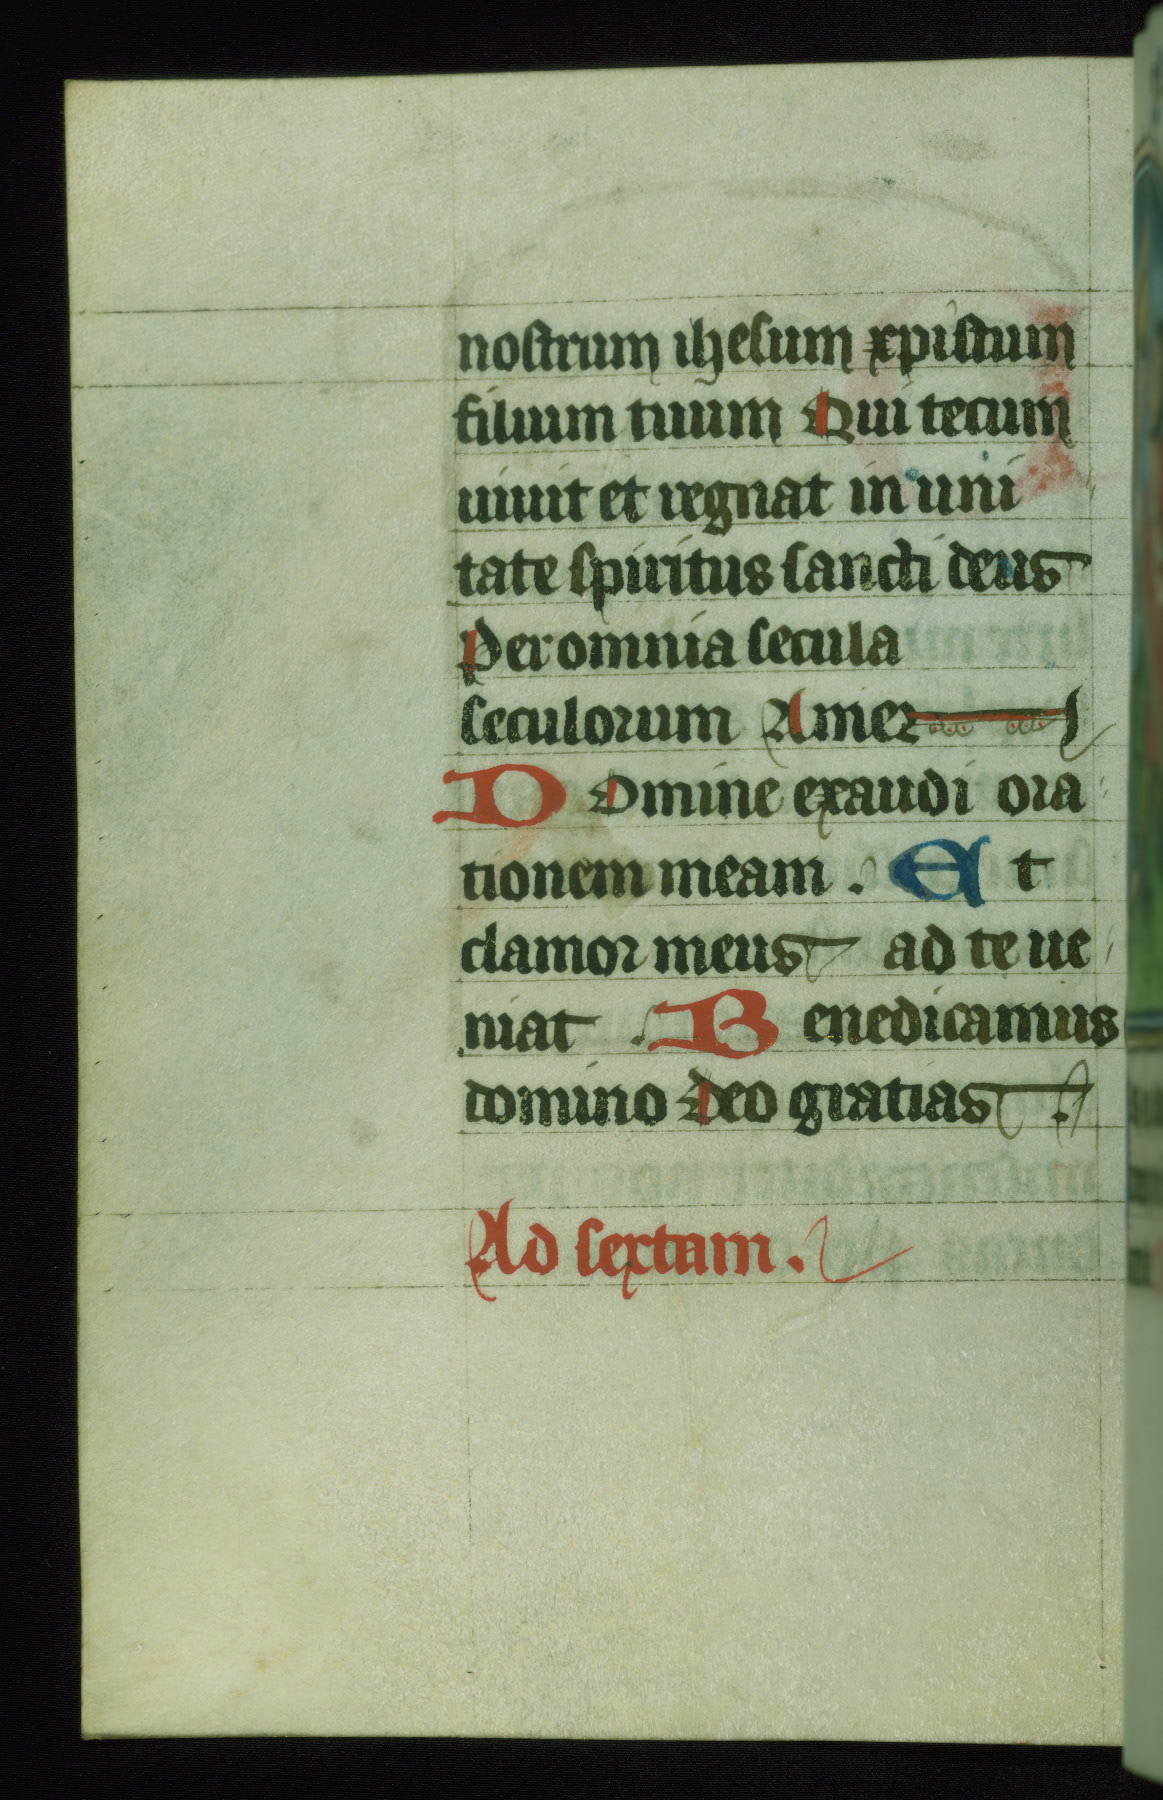 nostrum ihesum xpistum
filium tuum Qui tecum
uiuit et regnat in uni
tate spiritus sancti deus
Per omnia secula
seculorum Amen
D omine exaudi ora
tionem meam . Et
clamor meus ad te ue
niat . Benedicamus
domino Deo gratias .
Ad sextam .